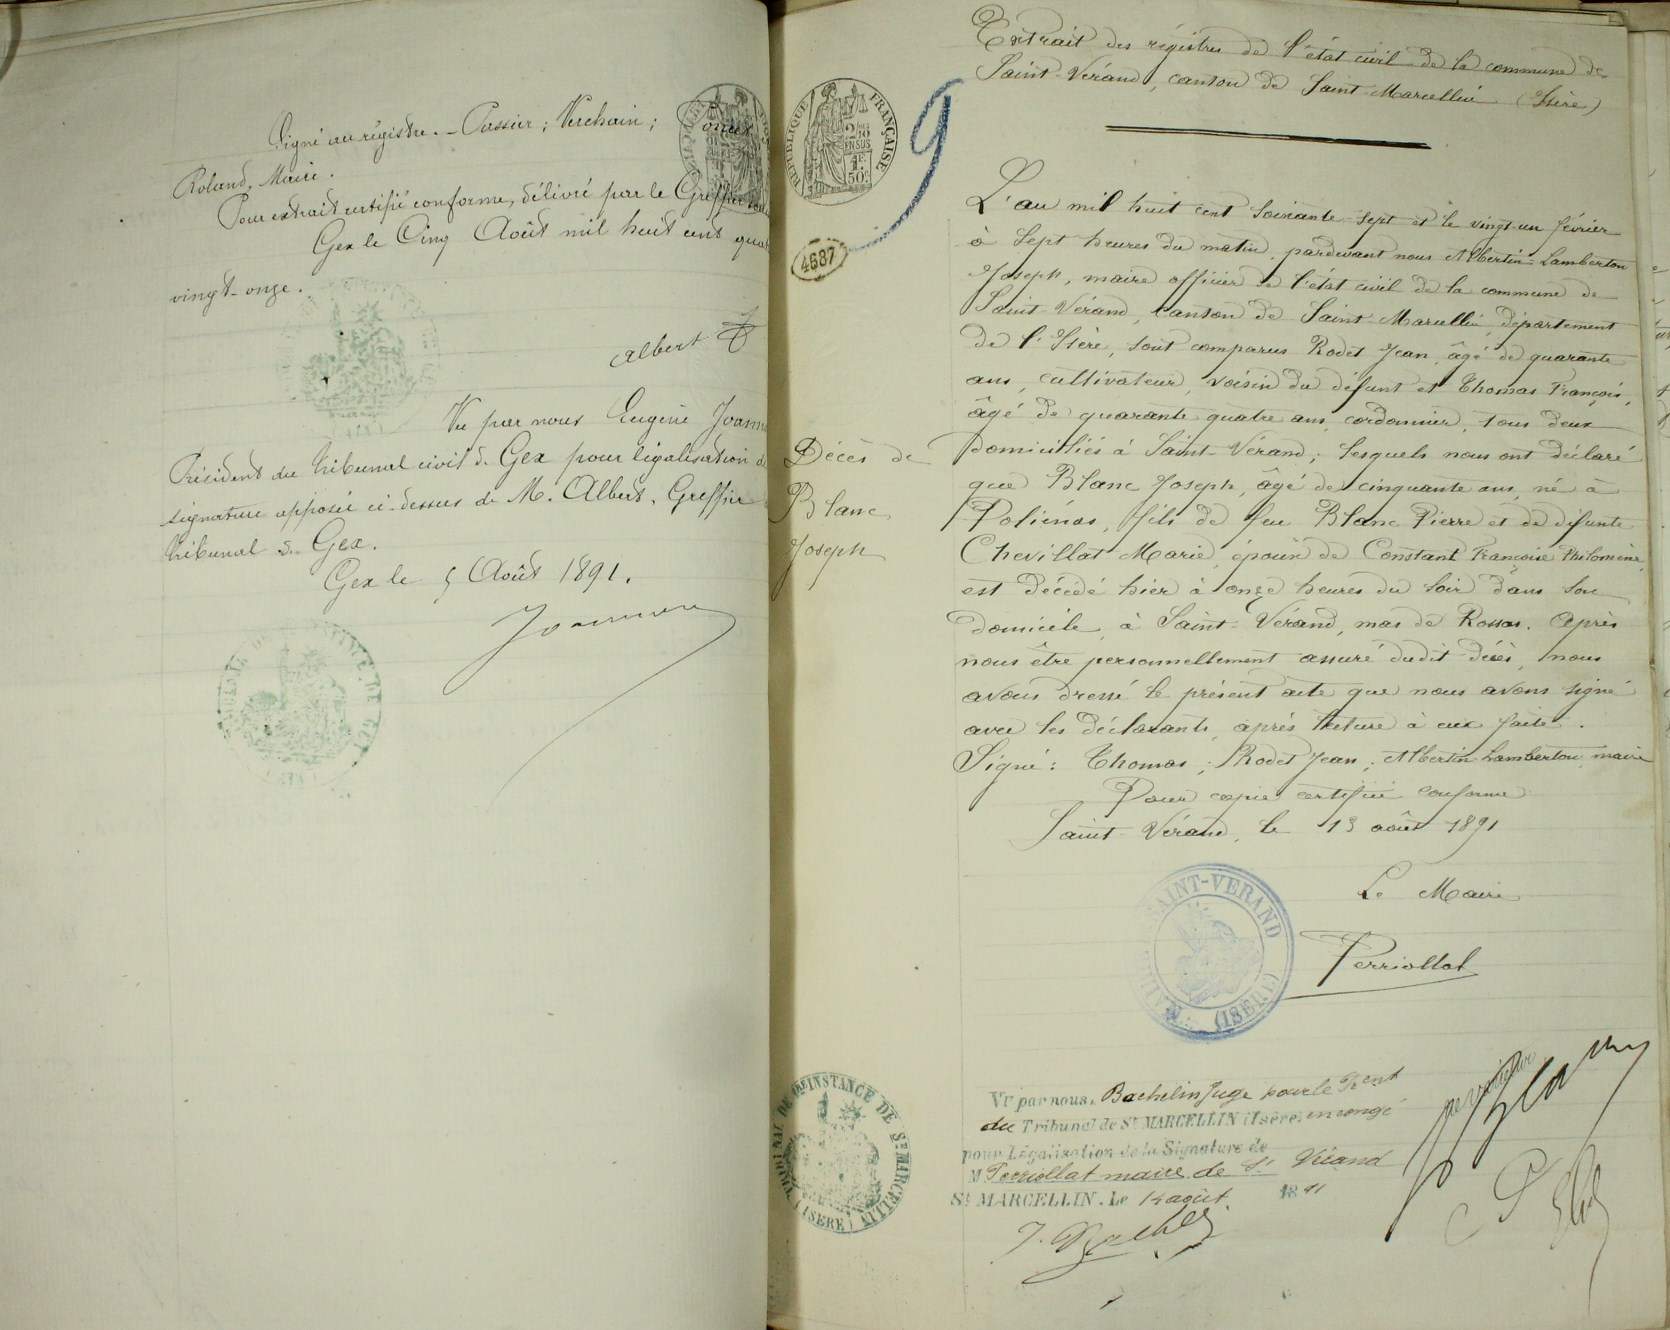 Signé au régistre. - Passier ; Verchain ;
Roland, Maire.
Pour extrait certifié conforme, délivré par le Greffier
Gex le Cinq Août mil huit cent quat
vingt-onze.
Albert
Vu par nous Eugène Joann
Président du tribunal civil de Gex pour légalisation de
signature apposée ci-dessus de M. Albert, Greffier
tribunal de Gex.
Gex le 5 Août 1891.
RÉPUBLIQUE FRANÇAISE
2/10 EN SUS
1F 50c
9
4687
Extrait des régistres de l'état civil de la commune de
Saint-Vérand, canton de Saint-Marcellin (Isère)
Décès de
Blanc
Joseph
L'an mil huit cent soixante-sept et le vingt-un février
à sept heures du matin, pardevant nous Albertin-Lamberton
Joseph, maire officier de l'état civil de la commune de
Saint-Vérand, canton de Saint-Marcellin, département
de l'Isère, sont comparus Rodet Jean, âgé de quarante
ans, cultivateur, voisin du défunt et Thomas François,
âgé de quarante quatre ans, cordonnier, tous deux
domiciliés à Saint-Vérand ; lesquels nous ont déclaré
que Blanc Joseph, âgé de cinquante ans, né à
Poliénas, fils de feu Blanc Pierre et de défunte
Chevillat Marie, époux de Constant Françoise Philomène,
est décédé hier à onze heures du soir dans son
domicile, à Saint-Vérand, mas de Rossas. Après
nous être personnellement assuré dudit décès, nous
avons dressé le présent acte que nous avons signé
avec les déclarants, après lecture à eux faite.
Signé : Thomas ; Rodet Jean ; Albertin Lamberton, maire
Pour copie certifiée conforme
Saint-Vérand, le 13 août 1891
Le Maire
Perriollat
SAINT-VERAND
(ISERE)
TRIBUNAL DE 1RE INSTANCE DE ST MARCELLIN (ISERE)
Vu par nous, Bachelin Juge pour le Pent
du Tribunal de St MARCELLIN (Isère) en congé
pour Légalisation de la Signature de
M Perriollat maire de St Vérand
St MARCELLIN, Le 14 août 1891